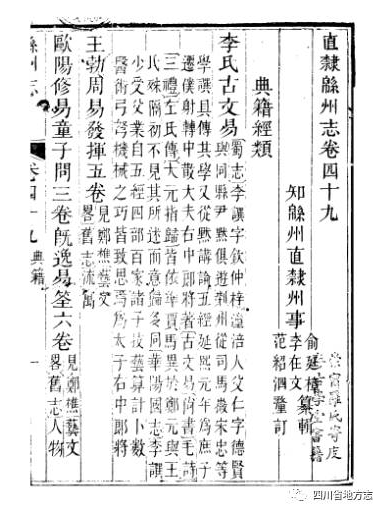 直隸緜州志卷四十九
知緜州直隸州事
俞廷樟
李在文 纂輯
范紹泗 釐訂
典籍經類
李氏古文易
蜀志李譔字欽仲梓潼涪人父仁字德賢
與同縣尹默俱遊荊州從司馬徽宋忠等
學譔具傳其學又從默講論五經延熙元年為庶子
遷僕射轉中散大夫右中郎將著古文易尚書毛詩
三禮左氏傳太元指歸皆依準賈馬異於鄭元與王
氏殊隔初不見其所述而意歸多同華陽國志李譔
少受父業自五經四部百家諸子技藝算計卜數
醫術弓弩機械之巧皆致思焉為太子右中郎將
王勃周易發揮五卷
見鄭樵藝文
畧舊志流寓
歐陽修易童子問三卷旣逸易筌六卷
見鄭樵藝文
畧舊志人物
緜州志
卷四十九 典籍
一
四川省地方志